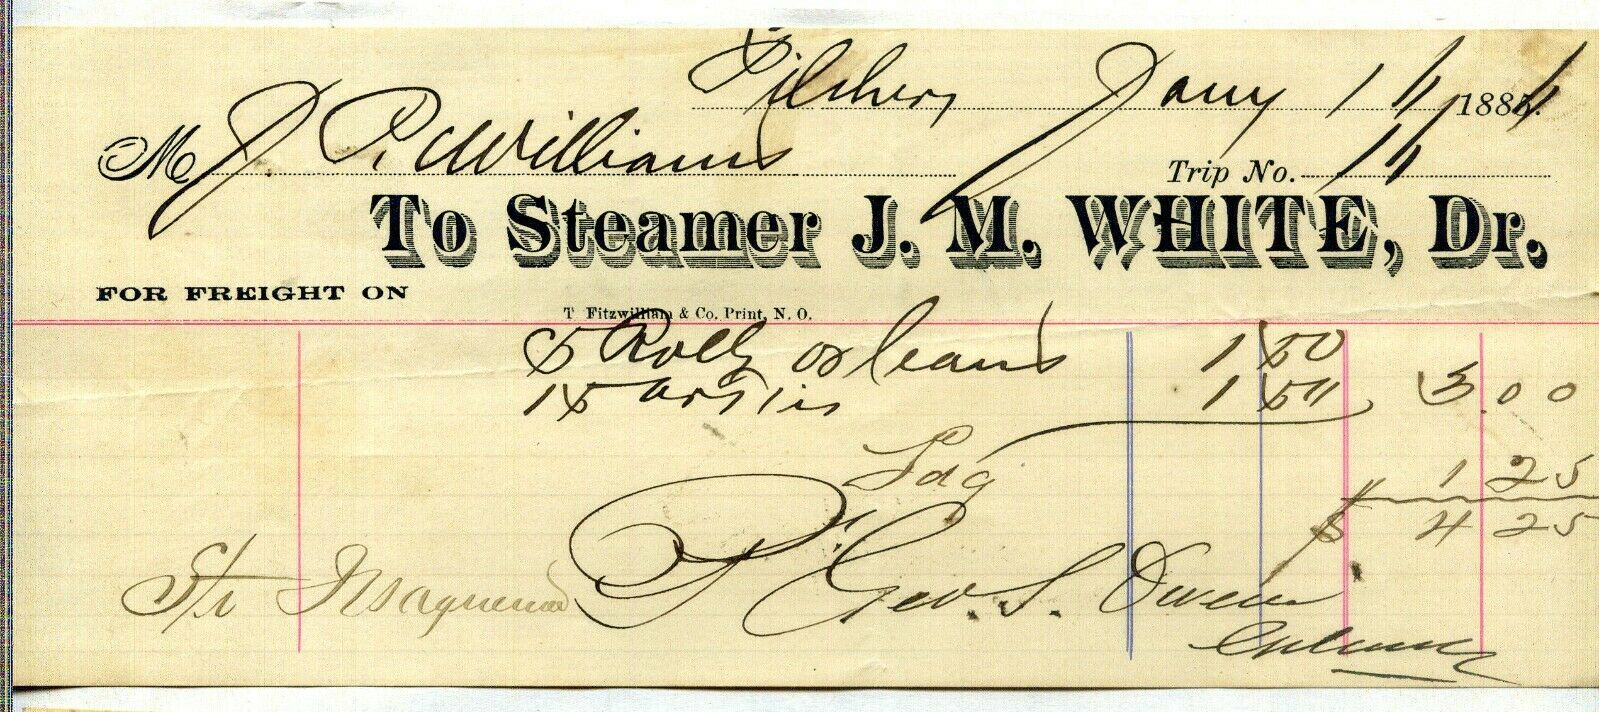 Pilchers Jany 11 1884
M J. P. Williams Trip No. 11
To Steamer J. M. WHITE, Dr.
FOR FREIGHT ON
T Fitzwilliam & Co. Print, N. O.
5 Rolls 1 50
15 1 50 3.00
1 25
$ 4 25
Str
Geo. S. Owen